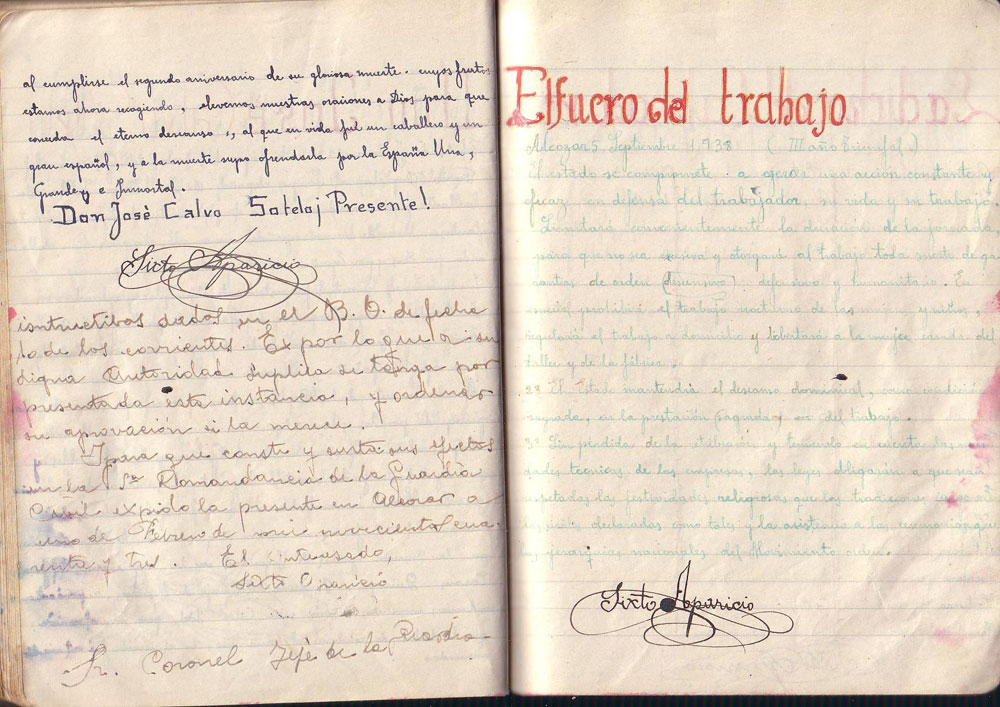 al cumplirse el segundo aniversario de su gloriosa muerte. cuyos frutos
estamos ahora recogiendo, elevemos nuestras oraciones a Dios para que
conceda el eterno descanso, al que en vida fué un caballero y un
gran español, y a la muerte supo ofrendarla por la España Una,
Grande y e Inmortal.
Don José Calvo Sotelo¡ Presente!
Sixto Aparicio
instructivos dados en el B. O. de fecha
10 de los corrientes. Ex por lo que a su
digna Autoridad suplica se tenga por
presentada esta instancia, y ordenar
su aprovación si la merece.
Y para que conste y surta sus efectos
en la Comandancia de la Guardia
Civil expido la presente en Alcozar a
uno de Febrero de mil novecientos cua-
renta y tres. El interesado,
Sixto Aparicio
Sr. Coronel Jefe de la
El fuero del trabajo
Alcozar 5 Septiembre 1.938 ( III año Triunfal.)
El estado se compromete a ejercer una acción constante y
eficaz en defensa del trabajador, su vida y su trabajo.
Limitará convenientemente la duración de la jornada
para que no sea excesiva y otorgará al trabajo toda suerte de ga-
rantías de orden defensivo y humanitario. En
prohibirá el trabajo nocturno de las y niños,
regulará el trabajo a domicilio y libertará a la mujer casada del
taller y de la fábrica.
2ª El Estado mantendrá el descanso dominical, como condición
sagrada, en la prestación del trabajo.
3ª Sin pérdida de la retribución y teniendo en cuenta las
dades técnicas de las empresas, las leyes obligarán a que sean
respetadas las festividades religiosas que las tradiciones
declaradas como tales y la asistencia a las ceremonias que
las jerarquías nacionales del Movimiento orden.
Sixto Aparicio